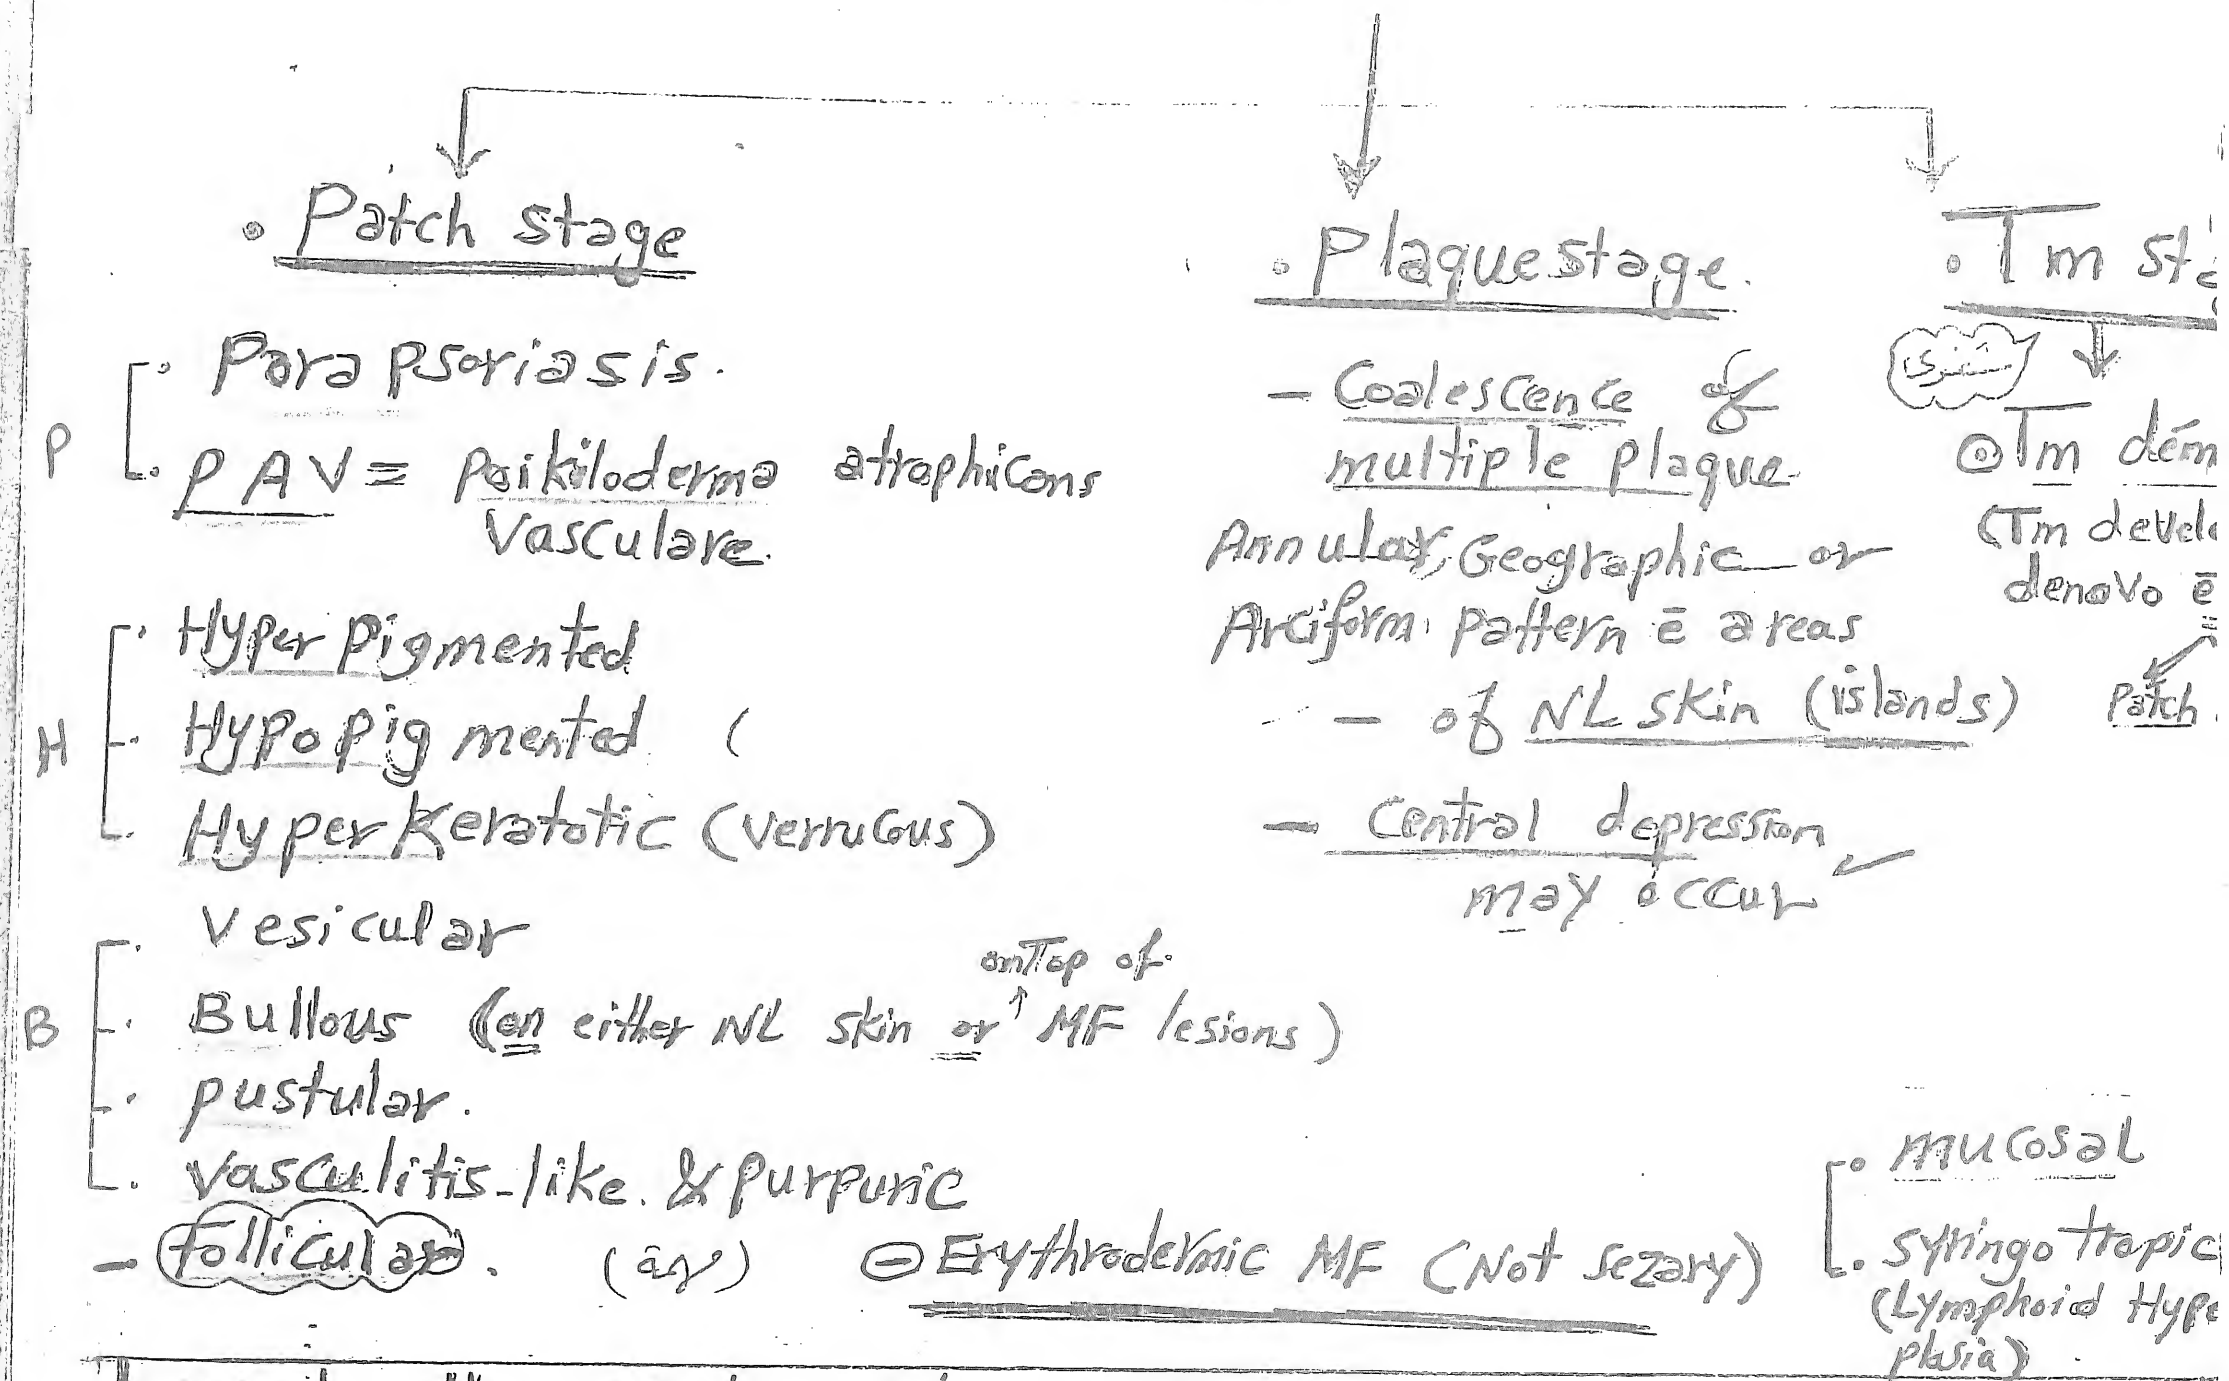 • Patch stage
• Parapsoriasis.
P
• PAV = Poikiloderma atrophicans
Vasculare.
• Hyper pigmented
H
- Hypo pigmented (
- Hyper Keratotic (verrucous)
• Vesicular
B
- Bullous (on either NL skin or ↑ MF lesions)
on Top of
- pustular.
• vasculitis-like. & purpuric
- Follicular.
⊖ Erythrodermic MF (Not sezary)
• Plaque stage.
- Coalescence of
multiple plaque
Annular, Geographic or
Arciform pattern ē areas
- of NL skin (islands)
- Central depression
may occur
• Tm
⊙ Tm
(Tm
denovo ē
Patch
• mucosal
• Syringotropic
(Lymphoid Hype
plasia)